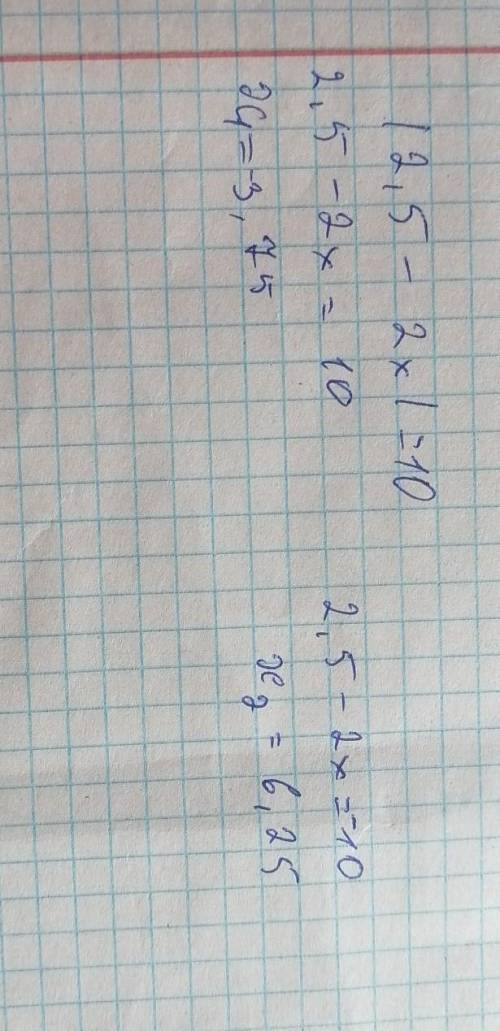 |2,5 - 2x|=10
2,5 - 2x = 10
x₁=-3,75
2,5 - 2x=-10
x₂ = 6,25